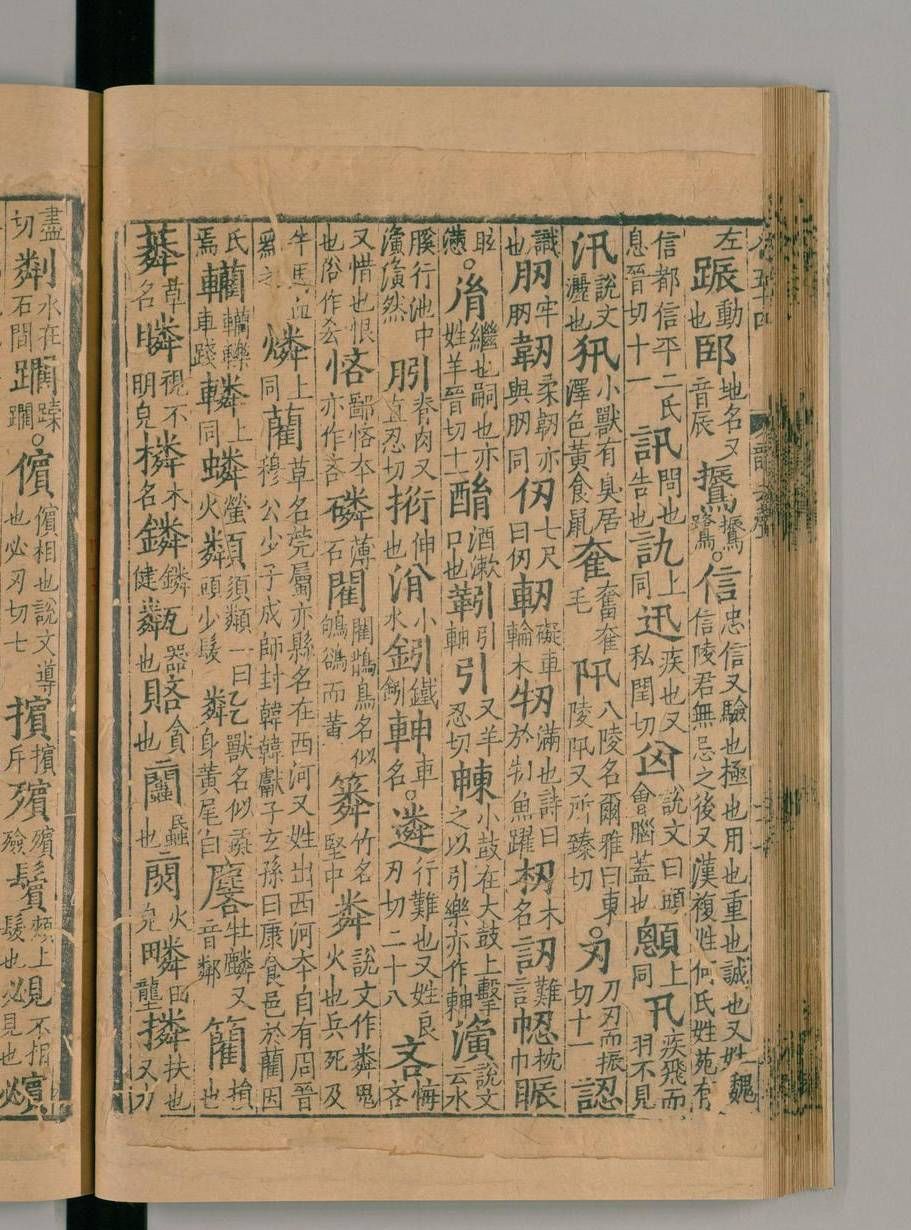 左 䟴動也 地名又音辰 。信忠信又驗也極也用也重也誠也又姓魏信陵君無忌之後又漢複姓何氏姓苑有
信都信平二氏息晉切十一 訊問也告也 訙上同 迅疾也又私閏切 囟說文曰頭會腦蓋也 顖上同 卂疾飛而羽不見
汛說文灑也 小獸有臭居澤色黃食鼠 奞奮奞毛 阠八陵名爾雅曰東陵阠又所臻切 。刃刀刃而振切十一 認
識也 肕牢肕 韌柔韌亦與肕同 仞七尺曰仞 軔礙車輪木 牣滿也詩曰於牣魚躍 杒木名 訒難言 枕巾
眩懣 。胤繼也嗣也亦姓羊晉切十 酳酒漱口也 靷引軸 引又羊忍切 朄小鼓在大鼓上擊之以引樂亦作 濥說文云水
脈行池中濥濥然 脊肉又直忍切 伸也 小水 鈏鐵鈏 車名 。遴行難也又姓良刃切二十八 吝悔吝
又惜也恨也俗作 悋鄙悋本亦作吝 磷薄石 閵閵鵲鳥名似鴝鵒而 竹名堅中 粦說文作㷠鬼火也兵死及
牛馬血為之 燐上同 藺草名莞屬亦縣名在西河又姓出西河本自有周晉穆公少子成師封韓韓獻子玄孫曰康食邑於藺因
氏焉 轥轥轢車踐 轔上同 螢火 須類一曰頭少髮 獸名似彘身黃尾白 麐牡麟又音鄰 損也
草名 瞵視不明皃 橉木名 鏻鏻健 瓦器也 貪也 蟲也 火皃 疄田壟 撛扶也又力
盡切 粼水在石間 躙躁躙 。儐儐相也說文導也必刃切七 擯擯斥 殯殯殮 鬢頰上髮也 不相見也必